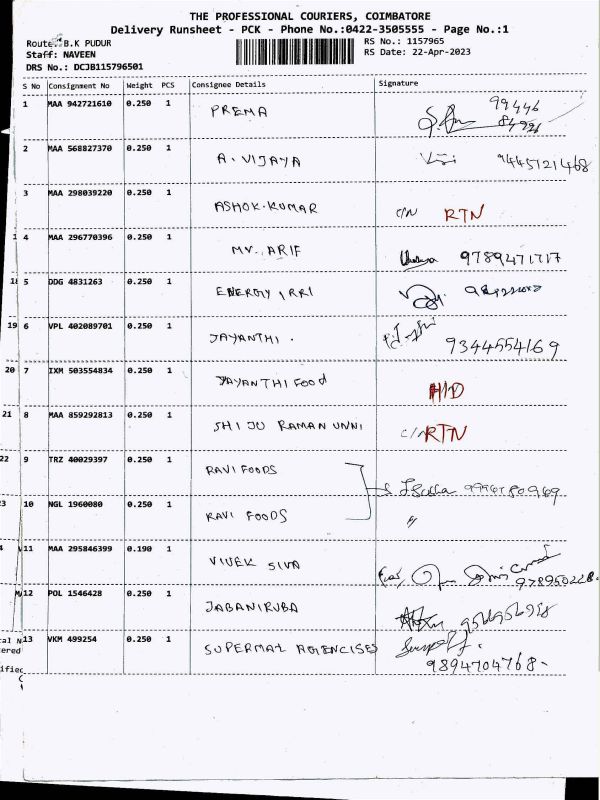 THE PROFESSIONAL COURIERS, COIMBATORE
Delivery Runsheet - PCK - Phone No.:0422-3505555 - Page No.:1
Route: B.K PUDUR
RS No.: 1157965
Staff: NAVEEN
RS Date: 22-Apr-2023
DRS No.: DCJB115796501
S No Consignment No Weight PCS Consignee Details Signature
1 MAA 942721610 0.250 1 PREMA 99446
84926
2 MAA 568827370 0.250 1 A. VIJAYA Viji 9445721468
3 MAA 298039220 0.250 1 ASHOK.KUMAR C/N RTN
4 MAA 296770396 0.250 1 MV. ARIF 9789471717
5 DDG 4831263 0.250 1 ENERGY, RRI
6 VPL 402089701 0.250 1 JAYANTHI. 9344554169
7 IXM 503554834 0.250 1 JAYANTHI FOOD H/D
8 MAA 859292813 0.250 1 SHIJU RAMAN UNNI C/N RTN
9 TRZ 40029397 0.250 1 RAVI FOODS
10 NGL 1960080 0.250 1 RAVI FOODS 〃
11 MAA 295846399 0.190 1 VIVEK SIVA
12 POL 1546428 0.250 1 JABANIRUBA
13 VKM 499254 0.250 1 SUPERMAL AGENCISES
9894704768-